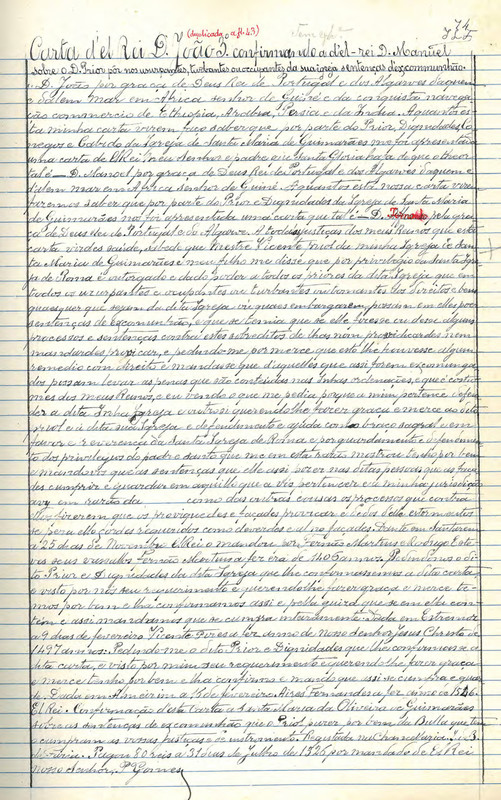 (duplicado a fl. 43)
Carta d'el Rei D. João 3. confirmando a d'el-rei D. Manuel
sobre o D. Prior pôr nos usurpantes, turbantes ou occupantes da sua igreja sentença d'excommunhão.
D. João por graça de Deus Rei de Portugal e dos Algarves daquem
e dalem mar em Africa senhor de Guiné e da conquista navega
ção commercio de Ethiopia, Arabia, Persia e da India. Aquantos es
ta minha carta virem faço saber que por parte do Prior, Dignidades Co
negos e Cabido da Igreja de Santa Maria de Guimarães me foi apresentada
uma carta de El Rei meu Senhor e padre que Santa Gloria haja de que o theor
tal é — D. Manoel por graça de Deus Rei de Portugal e dos Algarves daquem e
d'alem mar em Africa Senhor de Guiné. Aquantos esta nossa carta virem
fazemos saber que por parte do Prior e Dignidades da Igreja de Santa Maria
de Guimarães nos foi apresentada uma carta que tal é — D. Fernando pela gra
ça de Deus rei de Portugal e do Algarve. A vós justiças dos meus Reinos que esta
carta virdes saude, sabede que Mestre Vicente Prol da minha Igreja de San
ta Maria de Guimarães e meu filho me disse que por privilegio da Santa Igre
ja de Roma é outorgado e dado poder a todos os priores da dita Igreja que em
todos os usurpantes e occupantes ou turbantes dos direitos e bens
quaesquer que sejam da dita Igreja quaes embargarem, possam em elles poer
sentenças de excomunhão, e que se temia que se elle fizesse ou desse alguns
processos e sentenças contra estes sobreditos de lhas nom
mandardes provicar, e pedindo-me por mercê que esto lhe houvesse algum
remedio com direito e mandasse que d'aquelles que assi forem excomunga
dos possam levar as penas que são contheudas nas minhas ordenações e que é costu
me dos meus Reinos, e eu vendo o que me pedia, porque a mim pertence defen
der a dita minha Igreja e outrosi querendo lhe fazer graça e mercê ao dito
prol e á dita sua Igreja e defendimento e ajuda com o braço sagral e em
favor e reverença da Santa Igreja de Roma e por guardamento e defendimen
to dos privilegios do padre santo que me em esta razão mostrou tenho por bem
e mando-vos que as sentenças que elle assi poser nas ditas pessoas que as faça
des cumprir e guardar em aquello que a vós pertencer e á minha jurisdição
em razão da como das outras cousas os processos que contra
elles fizerem que os proviguedes e façades provicar
se pera ello fordes requeridos como devedes e al no façades. Dante em Santarem
a 25 dias de Novembro El Rei o mandou por Fernão Martins e Rodrigo Este
ves seus vassallos Fernão Martins a fez éra de 1406 annos. Pedindo-nos o di
to Prior e Dignidades da dita Igreja que lhe confirmassemos a dita carta
e visto por nós seu requerimento e querendo lhe fazer graça e mercê te
mos por bem e lha confirmamos assi e pella guiza que se em ella con
tem e assi mandamos que se cumpra inteiramente. Dada em Estremoz
a 9 dias de fevereiro Vicente Pires a fez anno de Nosso Senhor Jesus Christo de
1497 annos. Pedindo-me o dito Prior e Dignidades que lhe confirmasse a
dita carta, e visto por mim seu requerimento e querendo lhe fazer graça
e mercê tenho por bem e lha confirmo e mando que assi se cumpra e guar
de. Dada em Almeirim a de fevereiro Aires Fernandes a fez anno de 1526
El Rei. Confirmação d'esta carta a Santa Maria da Oliveira de Guimarães
sobre as sentenças de escomunhão que o Prior poser por bem de Bulla que tem
cumpram as vossas justiças Registada na Chancellaria
Pagou 80 réis a 31 dias de Julho de 1526 por mandado de El Rei
nosso Senhor, P. Gomes